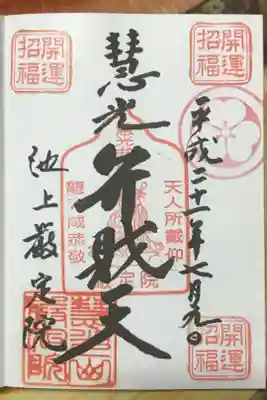 開運
招福
開運
招福
平成二十一年七月九日
慧光弁財天
天人所戴仰
龍神咸恭敬
池上厳定院
開運
招福